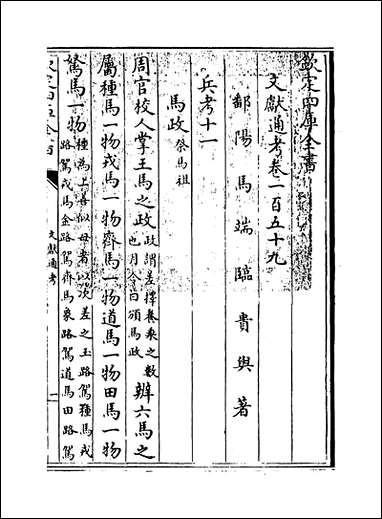 欽定四庫全書
文獻通考卷一百五十九
鄱陽馬端臨貴與著
兵考十一
馬政 祭馬祖
周官校人掌王馬之政 政謂差擇養乘之數也月令曰頒馬政 辨六馬之
屬種馬一物戎馬一物齊馬一物道馬一物田馬一物
駑馬一物 種為上善似母者以次差之玉路駕種馬戎路駕戎馬金路駕齊馬象路駕道馬田路駕
文獻通考
一